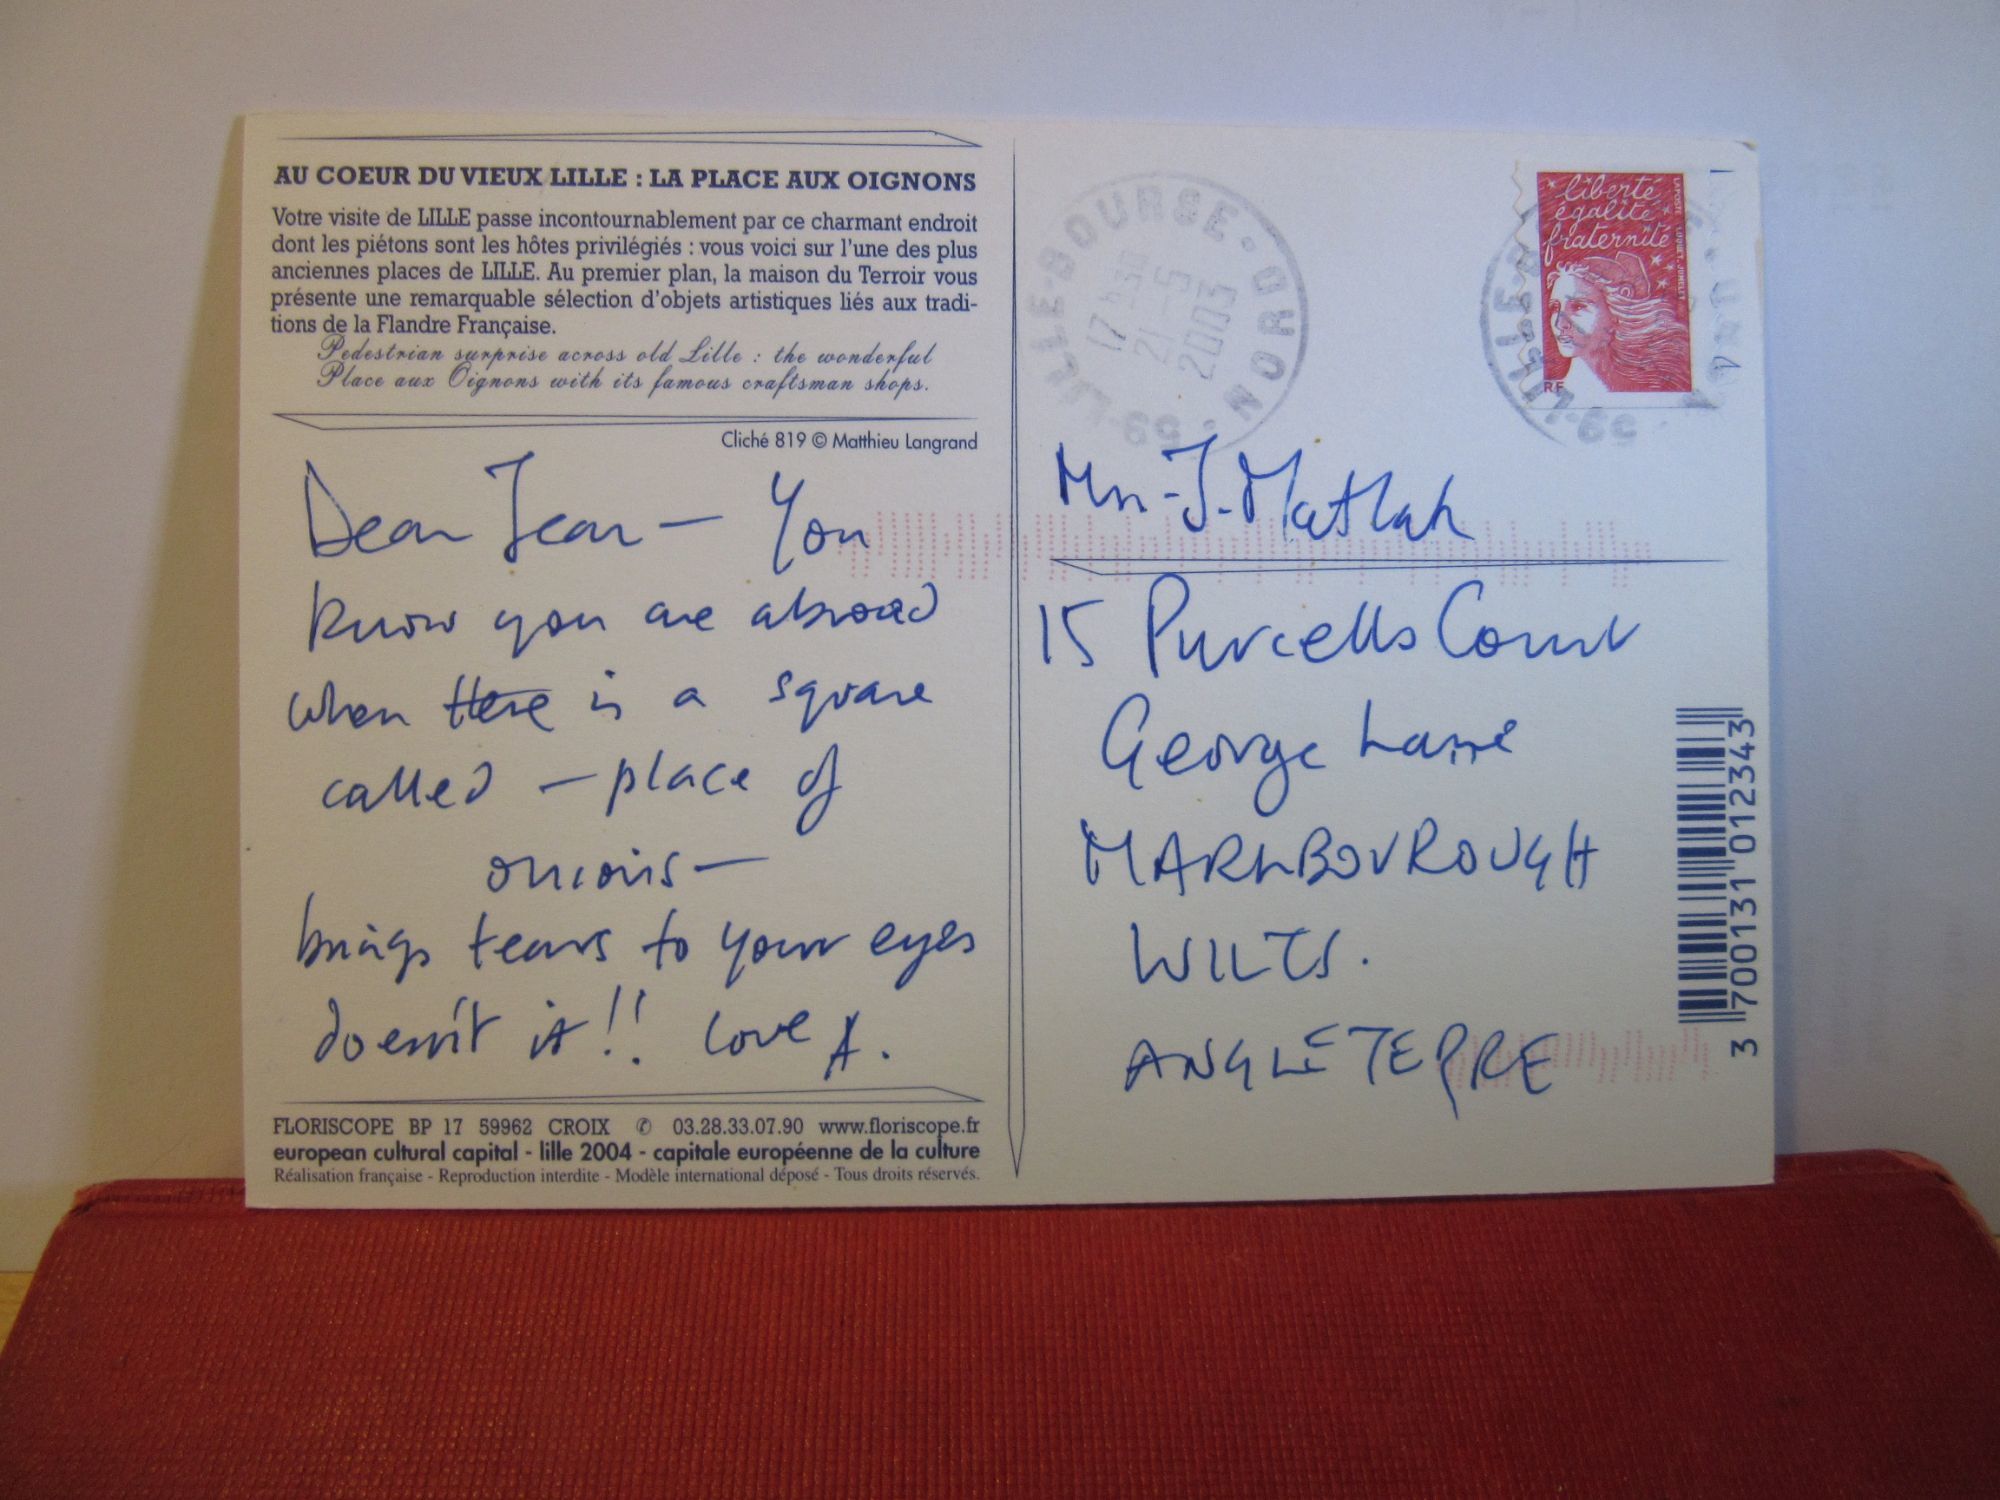 AU COEUR DU VIEUX LILLE : LA PLACE AUX OIGNONS
Votre visite de LILLE passe incontournablement par ce charmant endroit
dont les piétons sont les hôtes privilégiés : vous voici sur l'une des plus
anciennes places de LILLE. Au premier plan, la maison du Terroir vous
présente une remarquable sélection d'objets artistiques liés aux tradi-
tions de la Flandre Française.
Pedestrian surprise across old Lille : the wonderful
Place aux Oignons with its famous craftsman shops.
Cliché 819 © Matthieu Langrand
Dear Jean — You
know you are abroad
when there is a square
called — place of
onions —
brings tears to your eyes
doesn't it!! Love A.
FLORISCOPE BP 17 59962 CROIX ✆ 03.28.33.07.90 www.floriscope.fr
european cultural capital - lille 2004 - capitale européenne de la culture
Réalisation française - Reproduction interdite - Modèle international déposé - Tous droits réservés.
LILLE-BOURSE · NORD · 59
17 H 30
21-5
2003
liberté
égalité
fraternité
RF
LA POSTE LUQUET-JUMELET
Mrs - J. Matlah
15 Purcells Court
George Lane
MARLBOUROUGH
WILTS.
ANGLETERRE
3 700131 012343